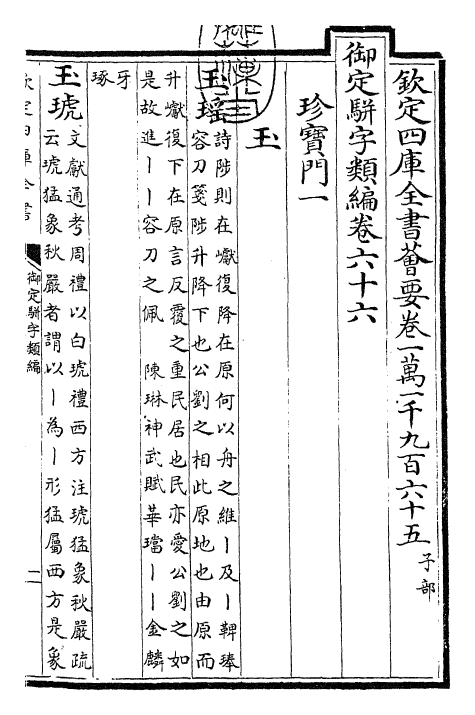 欽定四庫全書薈要卷一萬一千九百六十五 子部
御定駢字類編卷六十六
珍寶門一
玉
玉瑶 詩陟則在巘復降在原何以舟之維丨及丨鞞琫
容刀箋陟升降下也公劉之相此原地也由原而
升巘復下在原言反覆之重民居也民亦愛公劉之如
是故進丨丨容刀之佩 陳琳神武賦華璫丨丨金麟
牙
琢
玉琥 文獻通考周禮以白琥禮西方注琥猛象秋嚴疏
云琥猛象秋嚴者謂以丨為丨形猛屬西方是象
欽定四庫全書
御定駢字類編